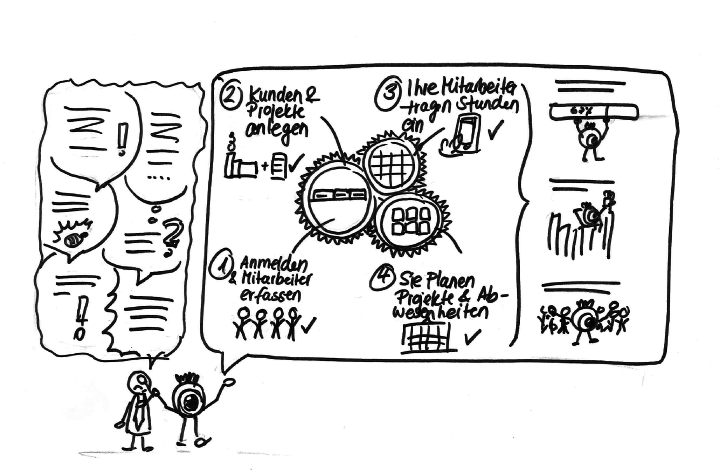 ① Anmelden
& Mitarbeiter
erfassen
② Kunden &
Projekte
anlegen
③ Ihre Mitarbeiter
tragen Stunden
ein
④ Sie Planen
Projekte & Ab-
wesenheiten
!
?
!